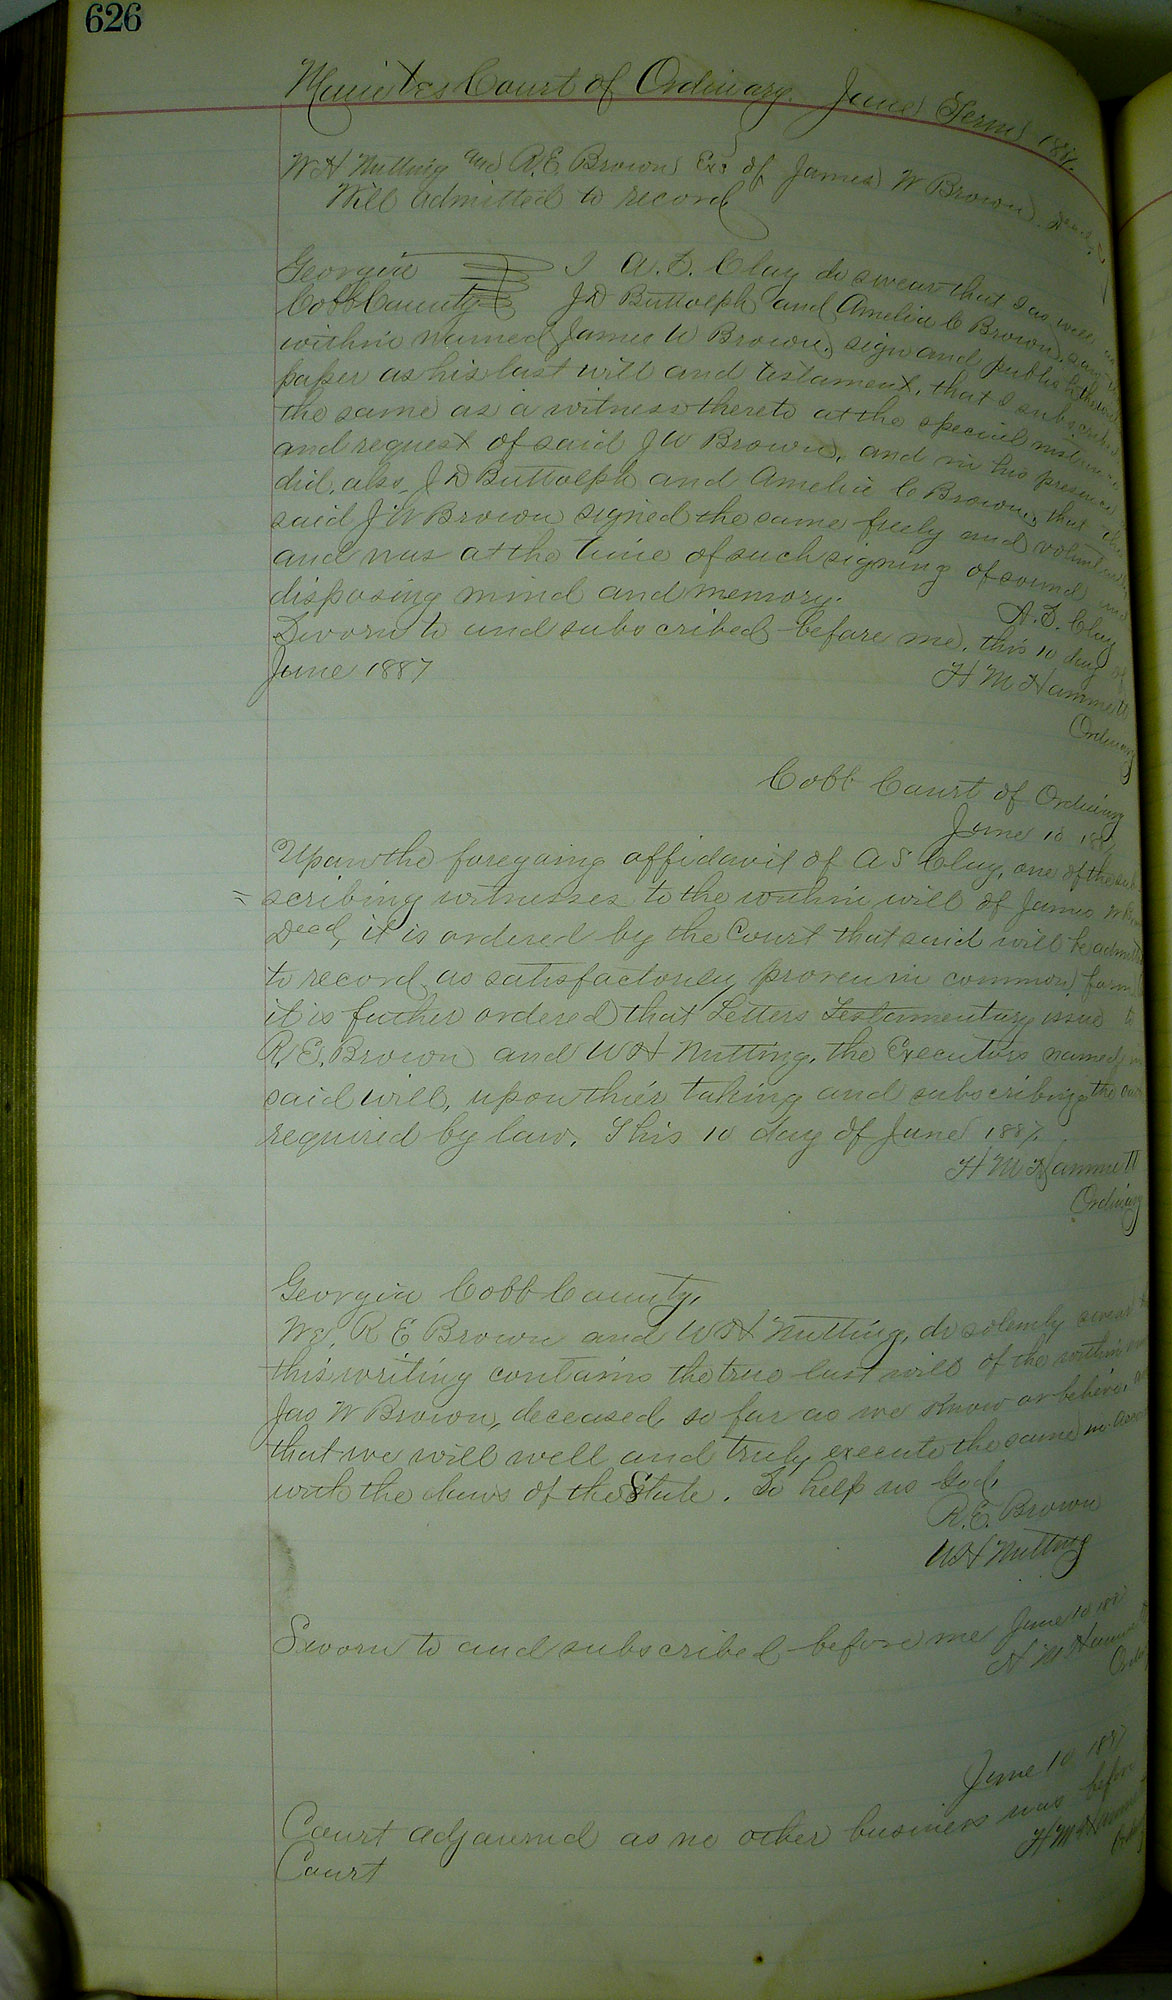 626
Minutes Court of Ordinary. June Term 1887.
W H Nutting and R. E. Brown Exs of James W Brown Decd
Will admitted to record
Georgia I A. S. Clay do swear that I as well as
Cobb County J D Buttolph and Amelia C Brown, saw the
within named James W Brown, sign and publish the within
paper as his last will and testament, that I subscribed
the same as a witness thereto at the special instance
and request of said J W Brown, and in his presence as
did, also, J D Buttolph and Amelia C Brown, that the
said J W Brown signed the same freely and voluntarily
and was at the time of such signing of sound and
disposing mind and memory.
A. S. Clay
Sworn to and subscribed before me, this 10 day of
June 1887
H M Hammett
Ordinary
Cobb Court of Ordinary
June 10 1887
Upon the foregoing affidavit of A S Clay, one of the sub
= scribing witnesses to the within will of James W Brown
Decd, it is ordered by the Court that said will be admitted
to record as satisfactorily proven in common form
it is futher ordered that Letters Testamentary issue to
R. E. Brown and W H Nutting, the Executors named in
said will, upon thier taking and subscribing the oath
required by law. This 10 day of June 1887.
H M Hammett
Ordinary
Georgia Cobb County,
We, R E Brown and W H Nutting, do solemly swear
this writing contains the true last will of the within
Jas W Brown, deceased, so far as we know or believe,
that we will well and truly execute the same in
with the laws of the State. So help us God.
R. E. Brown
W H Nutting
Sworn to and subscribed before me June 10 1887
H M Hammett
June 10 1887
Court adjourned as no other business was before
Court
H M Hammett